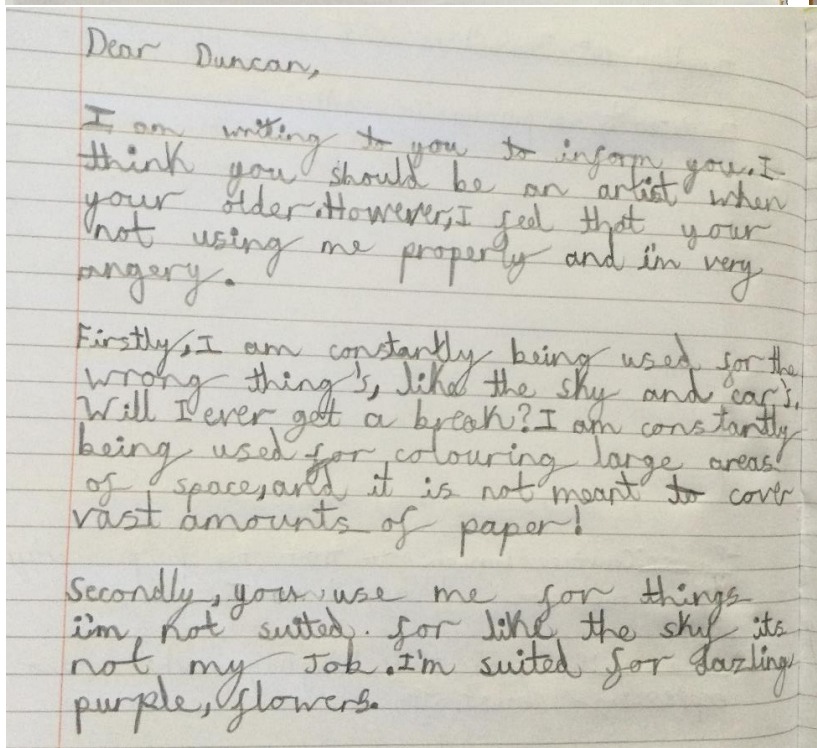 Dear Duncan,
I am writing to you to inform you. I
think you should be an artist when
your older. However, I feel that your
not using me properly and im very
angery.
Firstly, I am constantly being used for the
wrong thing's, like the sky and car's.
Will I ever get a break? I am constantly
being used for colouring large areas
of space, and it is not meant to cover
vast amounts of paper!
Secondly, you use me for things
i'm not suited. for like the sky its
not my Job. I'm suited for dazling
purple, flowers.